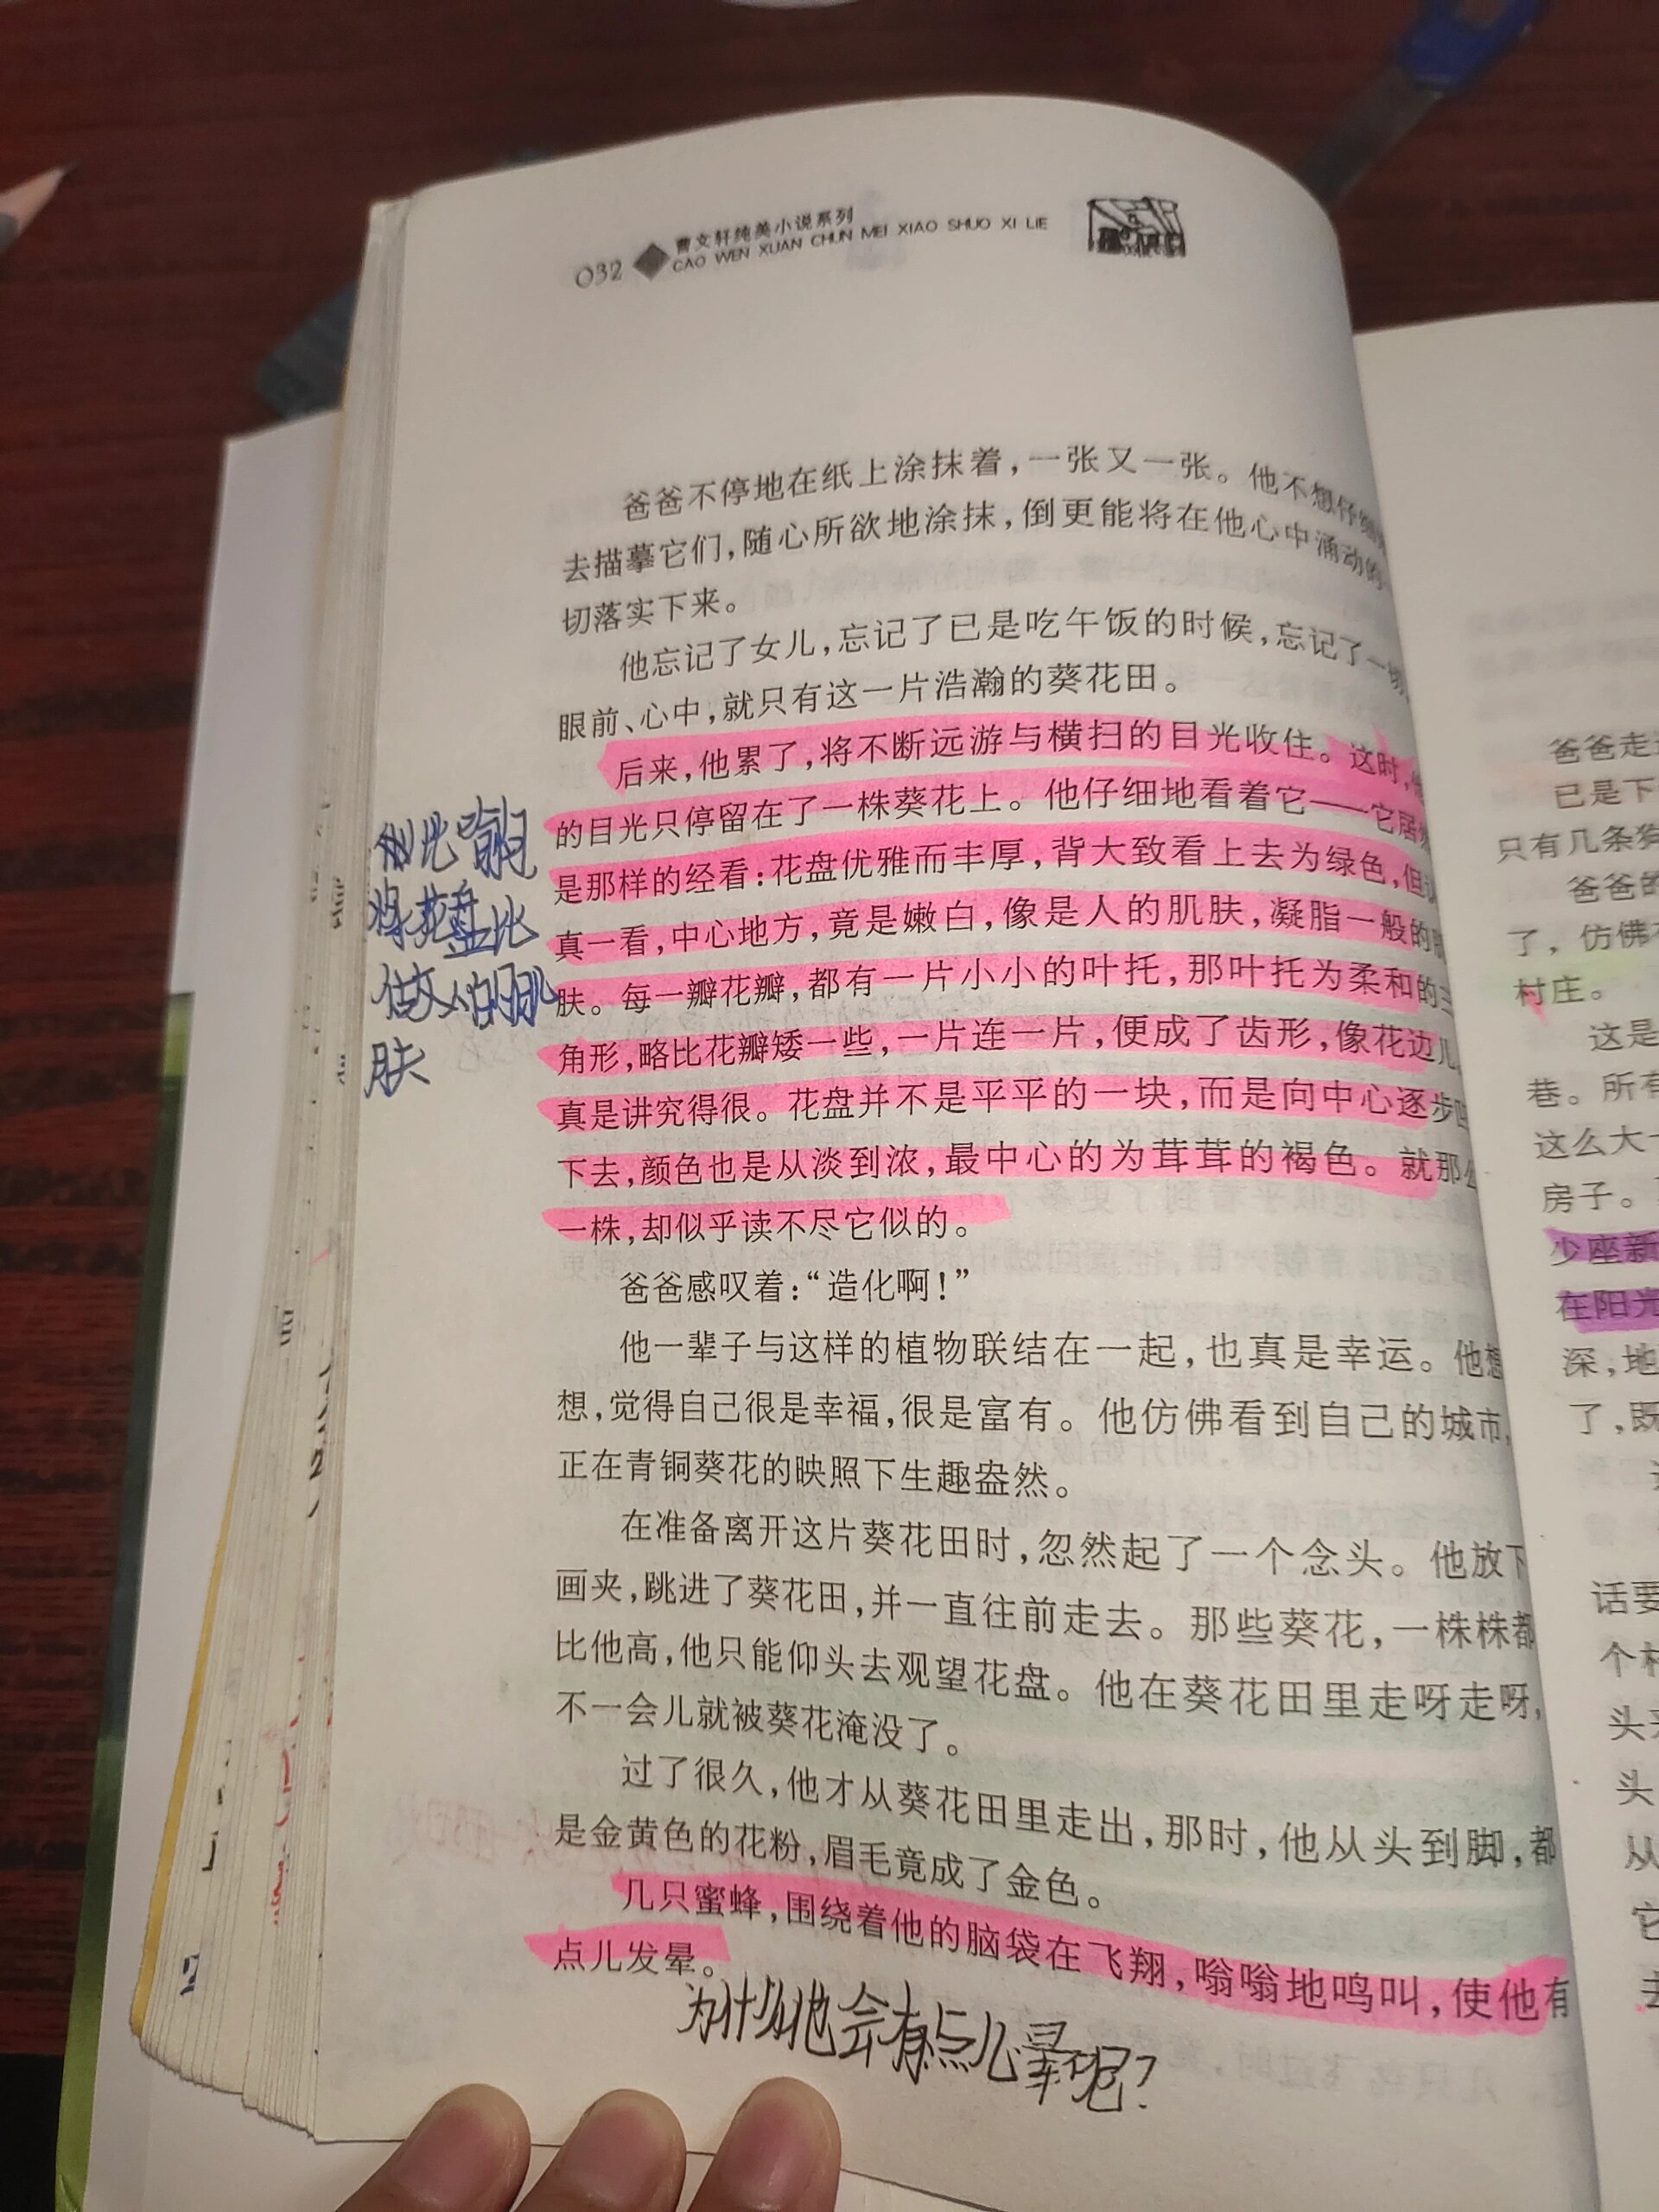 032 曹文轩纯美小说系列
CAO WEN XUAN CHUN MEI XIAO SHUO XI LIE
爸爸不停地在纸上涂抹着，一张又一张。他不想仔细
去描摹它们，随心所欲地涂抹，倒更能将在他心中涌动的
切落实下来。
他忘记了女儿，忘记了已是吃午饭的时候，忘记了一切
眼前、心中，就只有这一片浩瀚的葵花田。
后来，他累了，将不断远游与横扫的目光收住。这时，他
的目光只停留在了一株葵花上。他仔细地看着它——它居然
是那样的经看：花盘优雅而丰厚，背大致看上去为绿色，但认
真一看，中心地方，竟是嫩白，像是人的肌肤，凝脂一般的肌
肤。每一瓣花瓣，都有一片小小的叶托，那叶托为柔和的三
角形，略比花瓣矮一些，一片连一片，便成了齿形，像花边儿
真是讲究得很。花盘并不是平平的一块，而是向中心逐步凹
下去，颜色也是从淡到浓，最中心的为茸茸的褐色。就那么
一株，却似乎读不尽它似的。
爸爸感叹着：“造化啊！”
他一辈子与这样的植物联结在一起，也真是幸运。他想
想，觉得自己很是幸福，很是富有。他仿佛看到自己的城市，
正在青铜葵花的映照下生趣盎然。
在准备离开这片葵花田时，忽然起了一个念头。他放下
画夹，跳进了葵花田，并一直往前走去。那些葵花，一株株都
比他高，他只能仰头去观望花盘。他在葵花田里走呀走呀，
不一会儿就被葵花淹没了。
过了很久，他才从葵花田里走出，那时，他从头到脚，都
是金黄色的花粉，眉毛竟成了金色。
几只蜜蜂，围绕着他的脑袋在飞翔，嗡嗡地鸣叫，使他有
点儿发晕。
为什么他会有点儿晕呢？
将花盘比
做人的肌
肤
爸爸走
已是下
只有几条狗
爸爸的
了，仿佛
村庄。
这是
巷。所有
这么大
房子。
少座新
在阳光
深，地
了，既
话要
个村
头
头
从
它
去